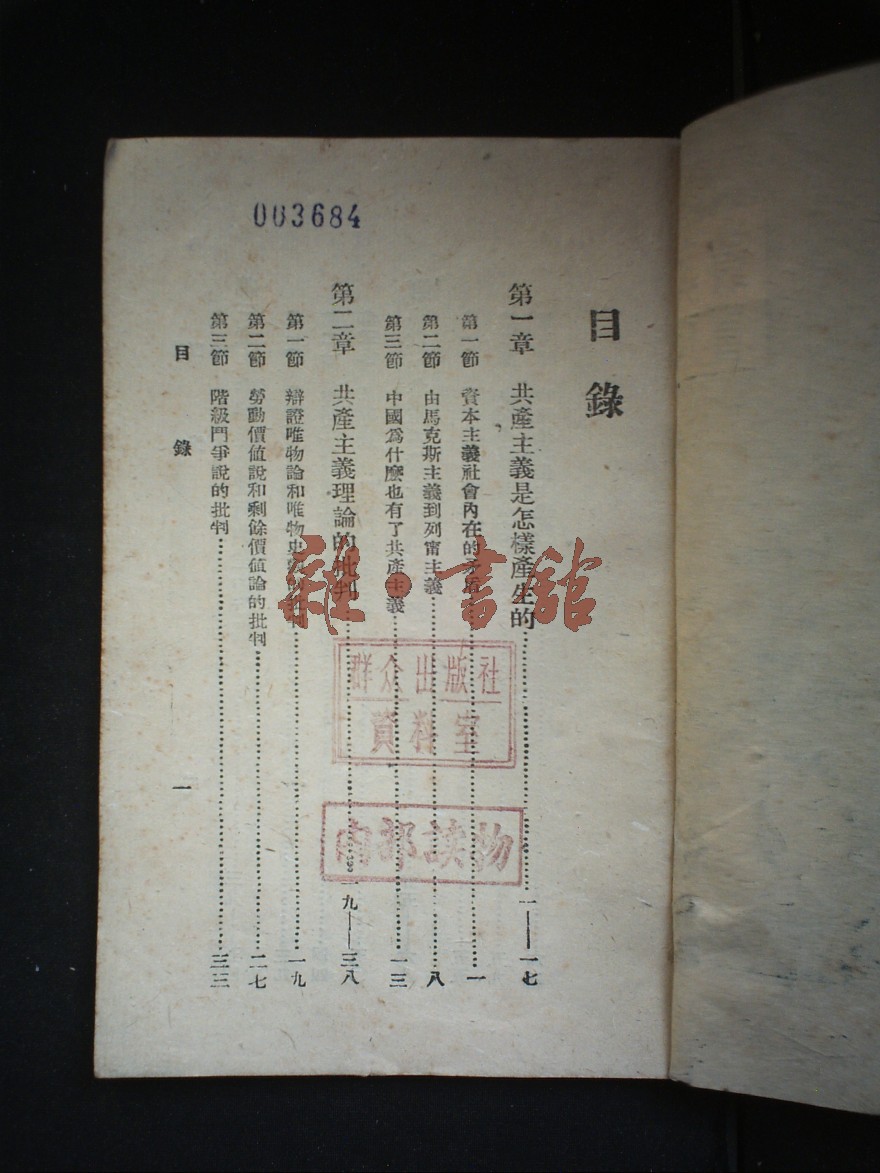 003684
目錄
第一章 共產主義是怎樣產生的……一——一七
第一節 資本主義社會內在的矛盾……一
第二節 由馬克斯主義到列甯主義……八
第三節 中國爲什麼也有了共產主義……一三
第二章 共產主義理論的批判……一九——三八
第一節 辯證唯物論和唯物史觀的批判……一九
第二節 勞動價値說和剩餘價値論的批判……二七
第三節 階級鬥爭說的批判……三三
目錄
一
雜·書館
群众出版社
資料室
内部读物